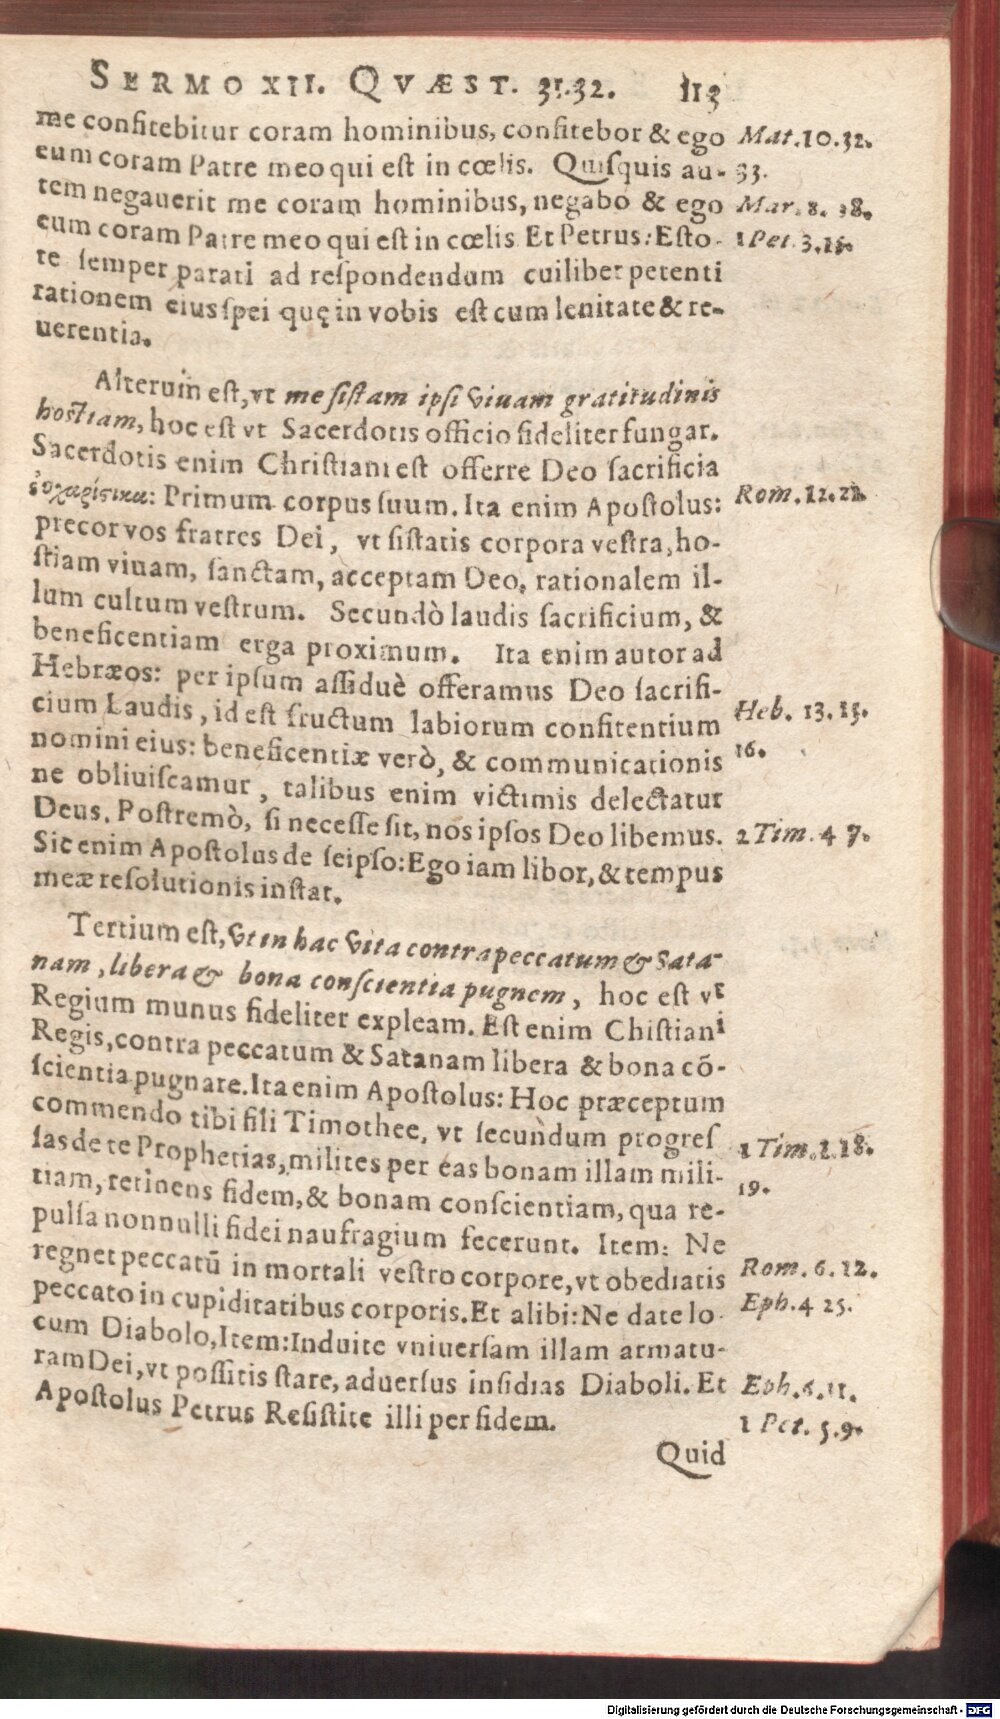 SERMO XII. QVÆST. 31.32. 113
me confitebitur coram hominibus, confitebor & ego Mat. 10.32.
eum coram Patre meo qui est in cœlis. Quisquis au- 33.
tem negauerit me coram hominibus, negabo & ego Mar. 8. 38.
eum coram Patre meo qui est in cœlis Et Petrus: Esto- 1 Pet. 3.15.
te semper parati ad respondendum cuilibet petenti
rationem eius spei quę in vobis est cum lenitate & re-
uerentia.
Alterum est, vt me sistam ipsi viuam gratitudinis
hostiam, hoc est vt Sacerdotis officio fideliter fungar.
Sacerdotis enim Christiani est offerre Deo sacrificia
Primum corpus suum. Ita enim Apostolus: Rom. 12.
precor vos fratres Dei, vt sistatis corpora vestra, ho-
stiam viuam, sanctam, acceptam Deo, rationalem il-
lum cultum vestrum. Secundò laudis sacrificium, &
beneficentiam erga proximum. Ita enim autor ad
Hebræos: per ipsum assiduè offeramus Deo sacrifi-
cium Laudis, id est fructum labiorum confitentium Heb. 13.15.
nomini eius: beneficentiæ verò, & communicationis 16.
ne obliuiscamur, talibus enim victimis delectatur
Deus. Postremò, si necesse sit, nos ipsos Deo libemus. 2 Tim. 4 7.
Sic enim Apostolus de seipso: Ego iam libor, & tempus
meæ resolutionis instat.
Tertium est, vt in hac vita contra peccatum & Sata-
nam, libera & bona conscientia pugnem, hoc est vt
Regium munus fideliter expleam. Est enim Chistiani
Regis, contra peccatum & Satanam libera & bona cō-
scientia pugnare. Ita enim Apostolus: Hoc præceptum
commendo tibi fili Timothee, vt secundum progres
sas de te Prophetias, milites per eas bonam illam mili- 1 Tim. 1.18.
tiam, retinens fidem, & bonam conscientiam, qua re- 19.
pulsa nonnulli fidei naufragium fecerunt. Item: Ne
regnet peccatū in mortali vestro corpore, vt obediatis Rom. 6. 12.
peccato in cupiditatibus corporis. Et alibi: Ne date lo- Eph. 4 25.
cum Diabolo, Item: Induite vniuersam illam armatu-
ram Dei, vt possitis stare, aduersus insidias Diaboli. Et Eph. 6.11.
Apostolus Petrus Resistite illi per fidem. 1 Pet. 5.9.
Quid
Digitalisierung gefördert durch die Deutsche Forschungsgemeinschaft - DFG